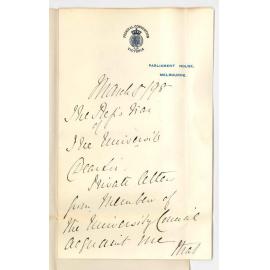 FEDERAL CONVENTION
VICTORIA
PARLIAMENT HOUSE,
MELBOURNE.
March 5/98
The Registrar
of
The University
Dear Sir
Private letter
from Member of
the University Council
acquaint me
that